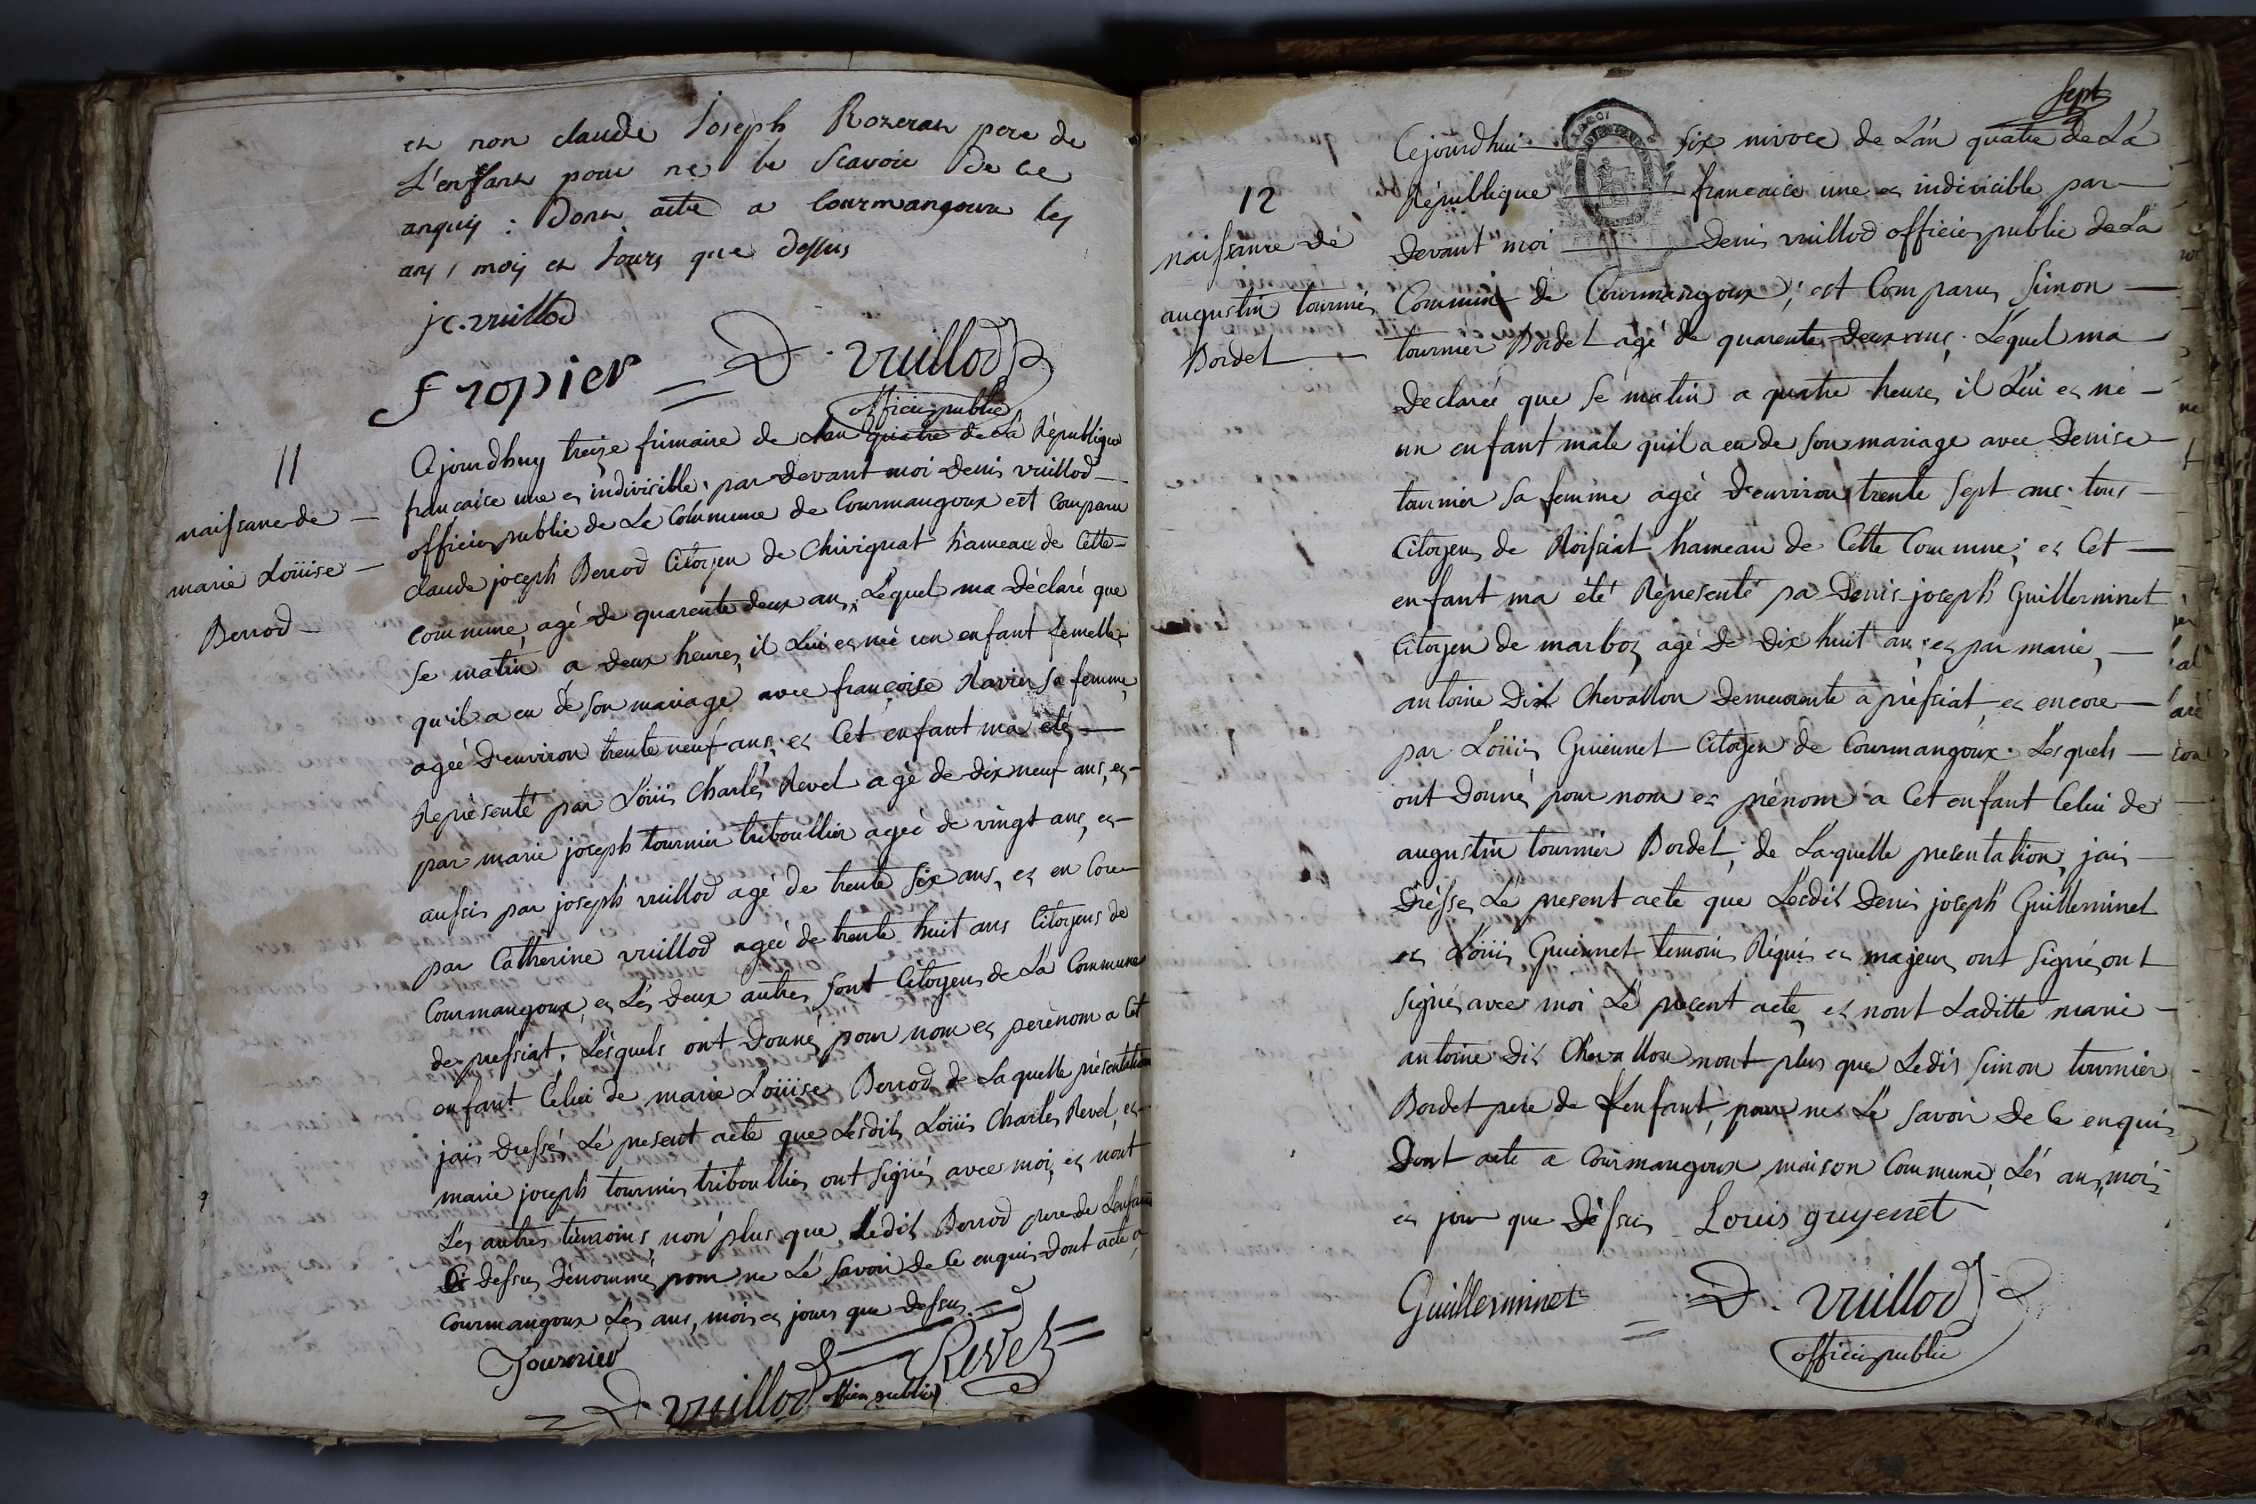 et non claude Joseph Rozeran pere de
L'enfant pour ne le Scavoir de ce
anquis : Dont acte a Courmangoux les
ans, mois et Jours que Dessus
jc. vuillod
fropier D. vuillod
officier public
11
naissance de
marie Loüise
Berrod
Cejourdhuy treize frimaire de Lan quatre de La République
francaise une et indivisible, par devant moi Denis vuillod
officier public de Le Commune de Courmangoux est comparu
claude joseph Berrod Citoyen de Chivignat hameau de Cette
commune, agé de quarente deux ans, Lequel ma Déclaré que
se matin a deux heures, il Lui es née un enfant femelle,
qu'il a eu de son mariage avec françoise Ravier sa femme,
ageé D'environ trente neuf ans, et Cet enfant ma été
Représenté par Loüis Charles Revel agé de dix neuf ans, et
par marie joseph tournier triboullier ageé de vingt ans, et
aussis par joseph vuillod agé de trente six ans, et en core
par Catherine vuillod ageé de trente huit ans Citoyens de
Courmangoux, et Les deux autres sont Citoyens de La Commune
de pressiat, Lesquels ont Donnés pour nom et perenom a Cet
enfant Celui de marie Loüise Berrod de Laquelle présentation
jais Dressé Le present acte que Lesdits Loüis Charles Revel, et
marie joseph tournier triboullier ont signés avec moi, et nont
Les autres témoins, non plus que Ledit Berrod pere de Lenfant
Ci dessus Dénommé, pour ne Lé savoir de Ce enquis Dont acte a
Courmangoux Les ans, mois et jours que dessus
Tournier Revel
D. vuillod officier public
Sept
12
naissance de
augustin tournier
Bordet
Cejourdhui six nivose de Lan quatre de La
République francaise une et indivicible par
devant moi Denis vuillod officier public de La
Commune de Courmangoux, est Comparus Simon
tournier Bordet agé de quarente deux ans, Lequel ma
declaréé que se matin a quatre heures il Lui es né
un enfant male quil a eu de son mariage avec Denise
tournier sa femme ageé d'environ trente sept ans, tous
Citoyens de Roissiat hameau de Cette Commune, et Cet
enfant ma été Répresenté pa Denis joseph Guillerminet
Citoyen de marboz, agé de dix huit ans, et par marie,
antoine Dit Chevallon Demeurente a préssiat, et encore
par Loüis Guiennet Citoyen de Courmangoux. Lesquels
ont Donnés pour nom et prénom a Cet enfant Celui de
augustin tournier Bordet, de Laquelle presentation, jais
Drésse, Lé present acte que Lesdit Denis joseph Guillerminet
et Loüis Guiennet temoins Réquis et majeurs, ont signés ont
signés avec moi Lé present acte, et nont Laditte marie
antoine Dit Chevallon nont plus que Ledis Simon tournier
Bordet pere de L'enfant, pour ne Lé savoir de Ce enquis
Dont acte a Courmangoux, maison Commune, Lés ans, mois
et jour que Déssus Louis guyenet
Guillerminet D. vuillod
officier public